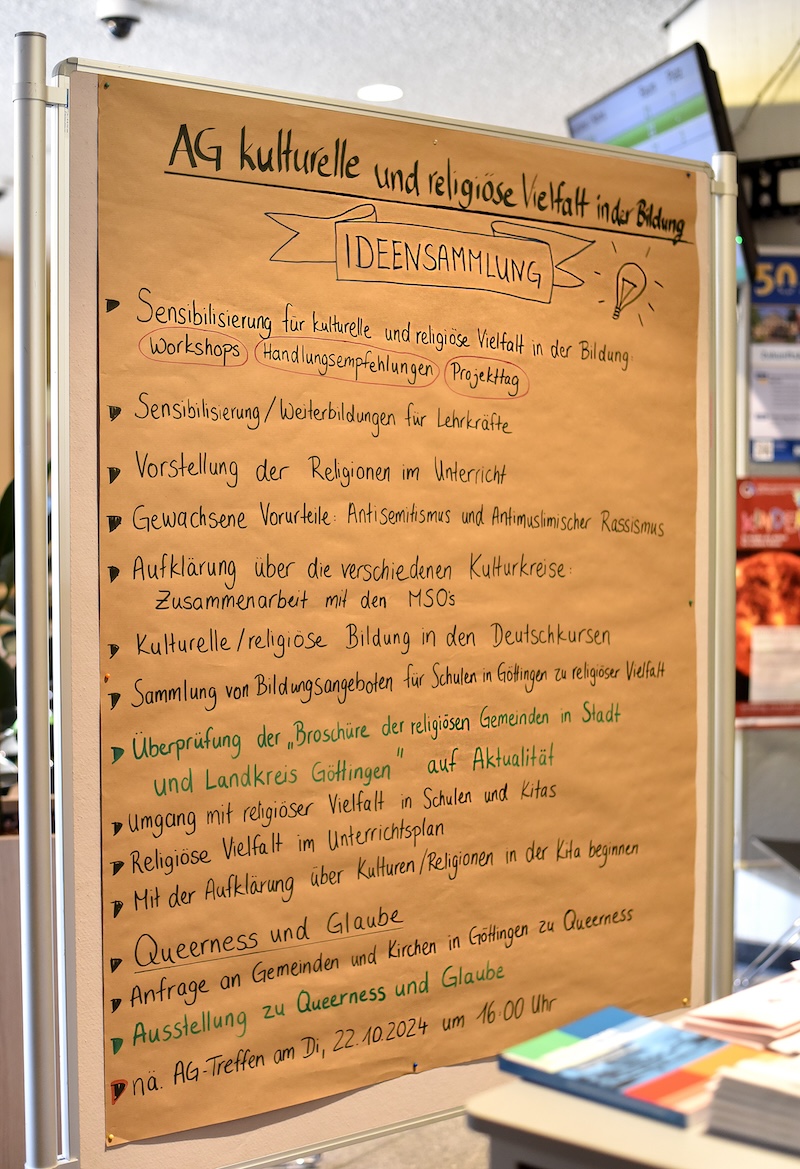 AG kulturelle und religiöse Vielfalt in der Bildung
IDEENSAMMLUNG
Sensibilisierung für kulturelle und religiöse Vielfalt in der Bildung:
Workshops Handlungsempfehlungen Projekttag
Sensibilisierung/Weiterbildungen für Lehrkräfte
Vorstellung der Religionen im Unterricht
Gewachsene Vorurteile: Antisemitismus und Antimuslimischer Rassismus
Aufklärung über die verschiedenen Kulturkreise:
Zusammenarbeit mit den MSO's
Kulturelle/religiöse Bildung in den Deutschkursen
Sammlung von Bildungsangeboten für Schulen in Göttingen zu religiöser Vielfalt
Überprüfung der „Broschüre der religiösen Gemeinden in Stadt
und Landkreis Göttingen" auf Aktualität
Umgang mit religiöser Vielfalt in Schulen und Kitas
Religiöse Vielfalt im Unterrichtsplan
Mit der Aufklärung über Kulturen/Religionen in der Kita beginnen
Queerness und Glaube
Anfrage an Gemeinden und Kirchen in Göttingen zu Queerness
Ausstellung zu Queerness und Glaube
nä. AG-Treffen am Di, 22.10.2024 um 16:00 Uhr
50